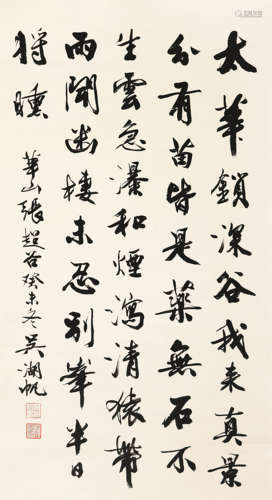 太華鎖深谷我来真景
分有苗皆是藥無石不
生雲急瀑和煙瀉清猿帶
雨聞幽棲未忍別峯半日
將曛
華山張超谷癸未冬吳湖帆